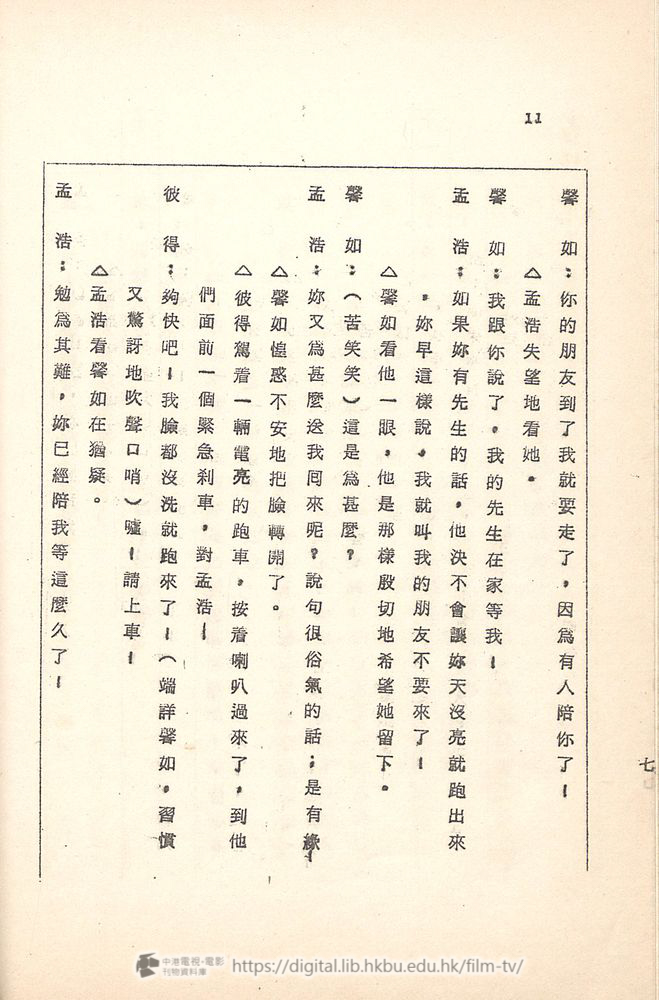 11
馨 如：你的朋友到了我就要走了，因為有人陪你了！
△孟浩失望地看她。
馨 如：我跟你說了，我的先生在家等我！
孟 浩：如果妳有先生的話，他決不會讓妳天沒亮就跑出來
，妳早這樣說，我就叫我的朋友不要來了！
△馨如看他一眼，他是那樣殷切地希望她留下。
馨 如：（苦笑笑）這是為甚麼？
孟 浩：妳又為甚麼送我回來呢？說句很俗氣的話；是有緣！
△馨如惶惑不安地把臉轉開了。
△彼得駕着一輛電亮的跑車，按着喇叭過來了，到他
們面前一個緊急刹車，對孟浩！
彼 得：夠快吧！我臉都沒洗就跑來了！（端詳馨如，習慣
又驚訝地吹聲口哨）噓！請上車！
△孟浩看馨如在猶疑。
孟 浩：勉為其難，妳已經陪我等這麼久了！
七
中港電視·電影
刊物資料庫
https://digital.lib.hkbu.edu.hk/film-tv/